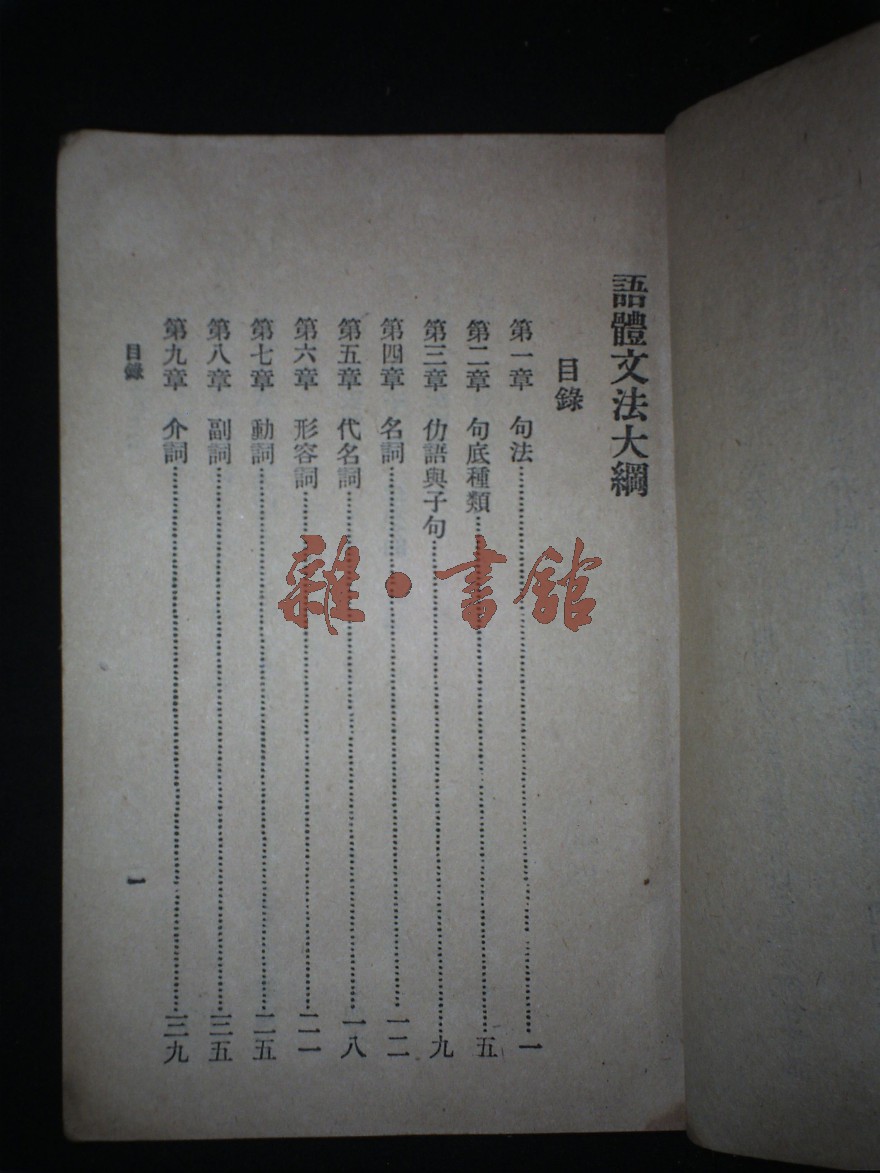 語體文法大綱
目錄
第一章 句法……一
第二章 句底種類……五
第三章 仂語與子句……九
第四章 名詞……一二
第五章 代名詞……一八
第六章 形容詞……二一
第七章 動詞……二五
第八章 副詞……三五
第九章 介詞……三九
目錄
一
雜·書館